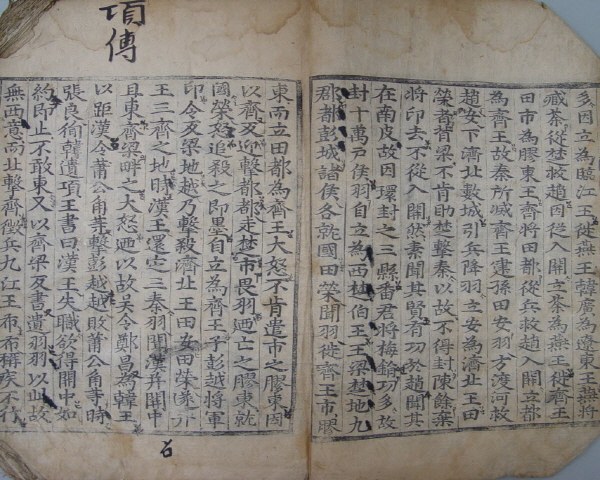 多因立為臨江王徙燕王韓廣為遼東王燕將
臧荼從楚救趙因從入關立荼為燕王徙齊王
田市為膠東王齊將田都從兵救趙入關立都
為齊王故秦所滅齊王建孫田安羽方渡河救
趙安下濟北數城引兵降羽立安為濟北王田
榮者背梁不肯助楚擊秦以故不得封陳餘棄
將印去不從入關然素聞其賢有功於趙聞其
在南皮故因環封之三縣番君將梅鋗功多故
封十萬戶侯羽自立為西楚伯王王梁楚地九
郡都彭城諸侯各就國田榮聞羽徙齊王市膠
項傳
東而立田都為齊王大怒不肯遣市之膠東因
以齊反迎擊都都走楚市畏羽迺亡之膠東就
國榮怒追殺之即墨自立為齊王予彭越將軍
印令反梁地越乃擊殺濟北王田安田榮遂并
王三齊之地時漢王還定三秦羽聞漢并關中
且東齊梁畔之大怒迺以故吳令鄭昌為韓王
以距漢令蕭公角等擊彭越越敗蕭公角等時
張良徇韓遺項王書曰漢王失職欲得關中如
約即止不敢東又以齊梁反書遺羽羽以此故
無西意而北擊齊徵兵九江王布布稱疾不行